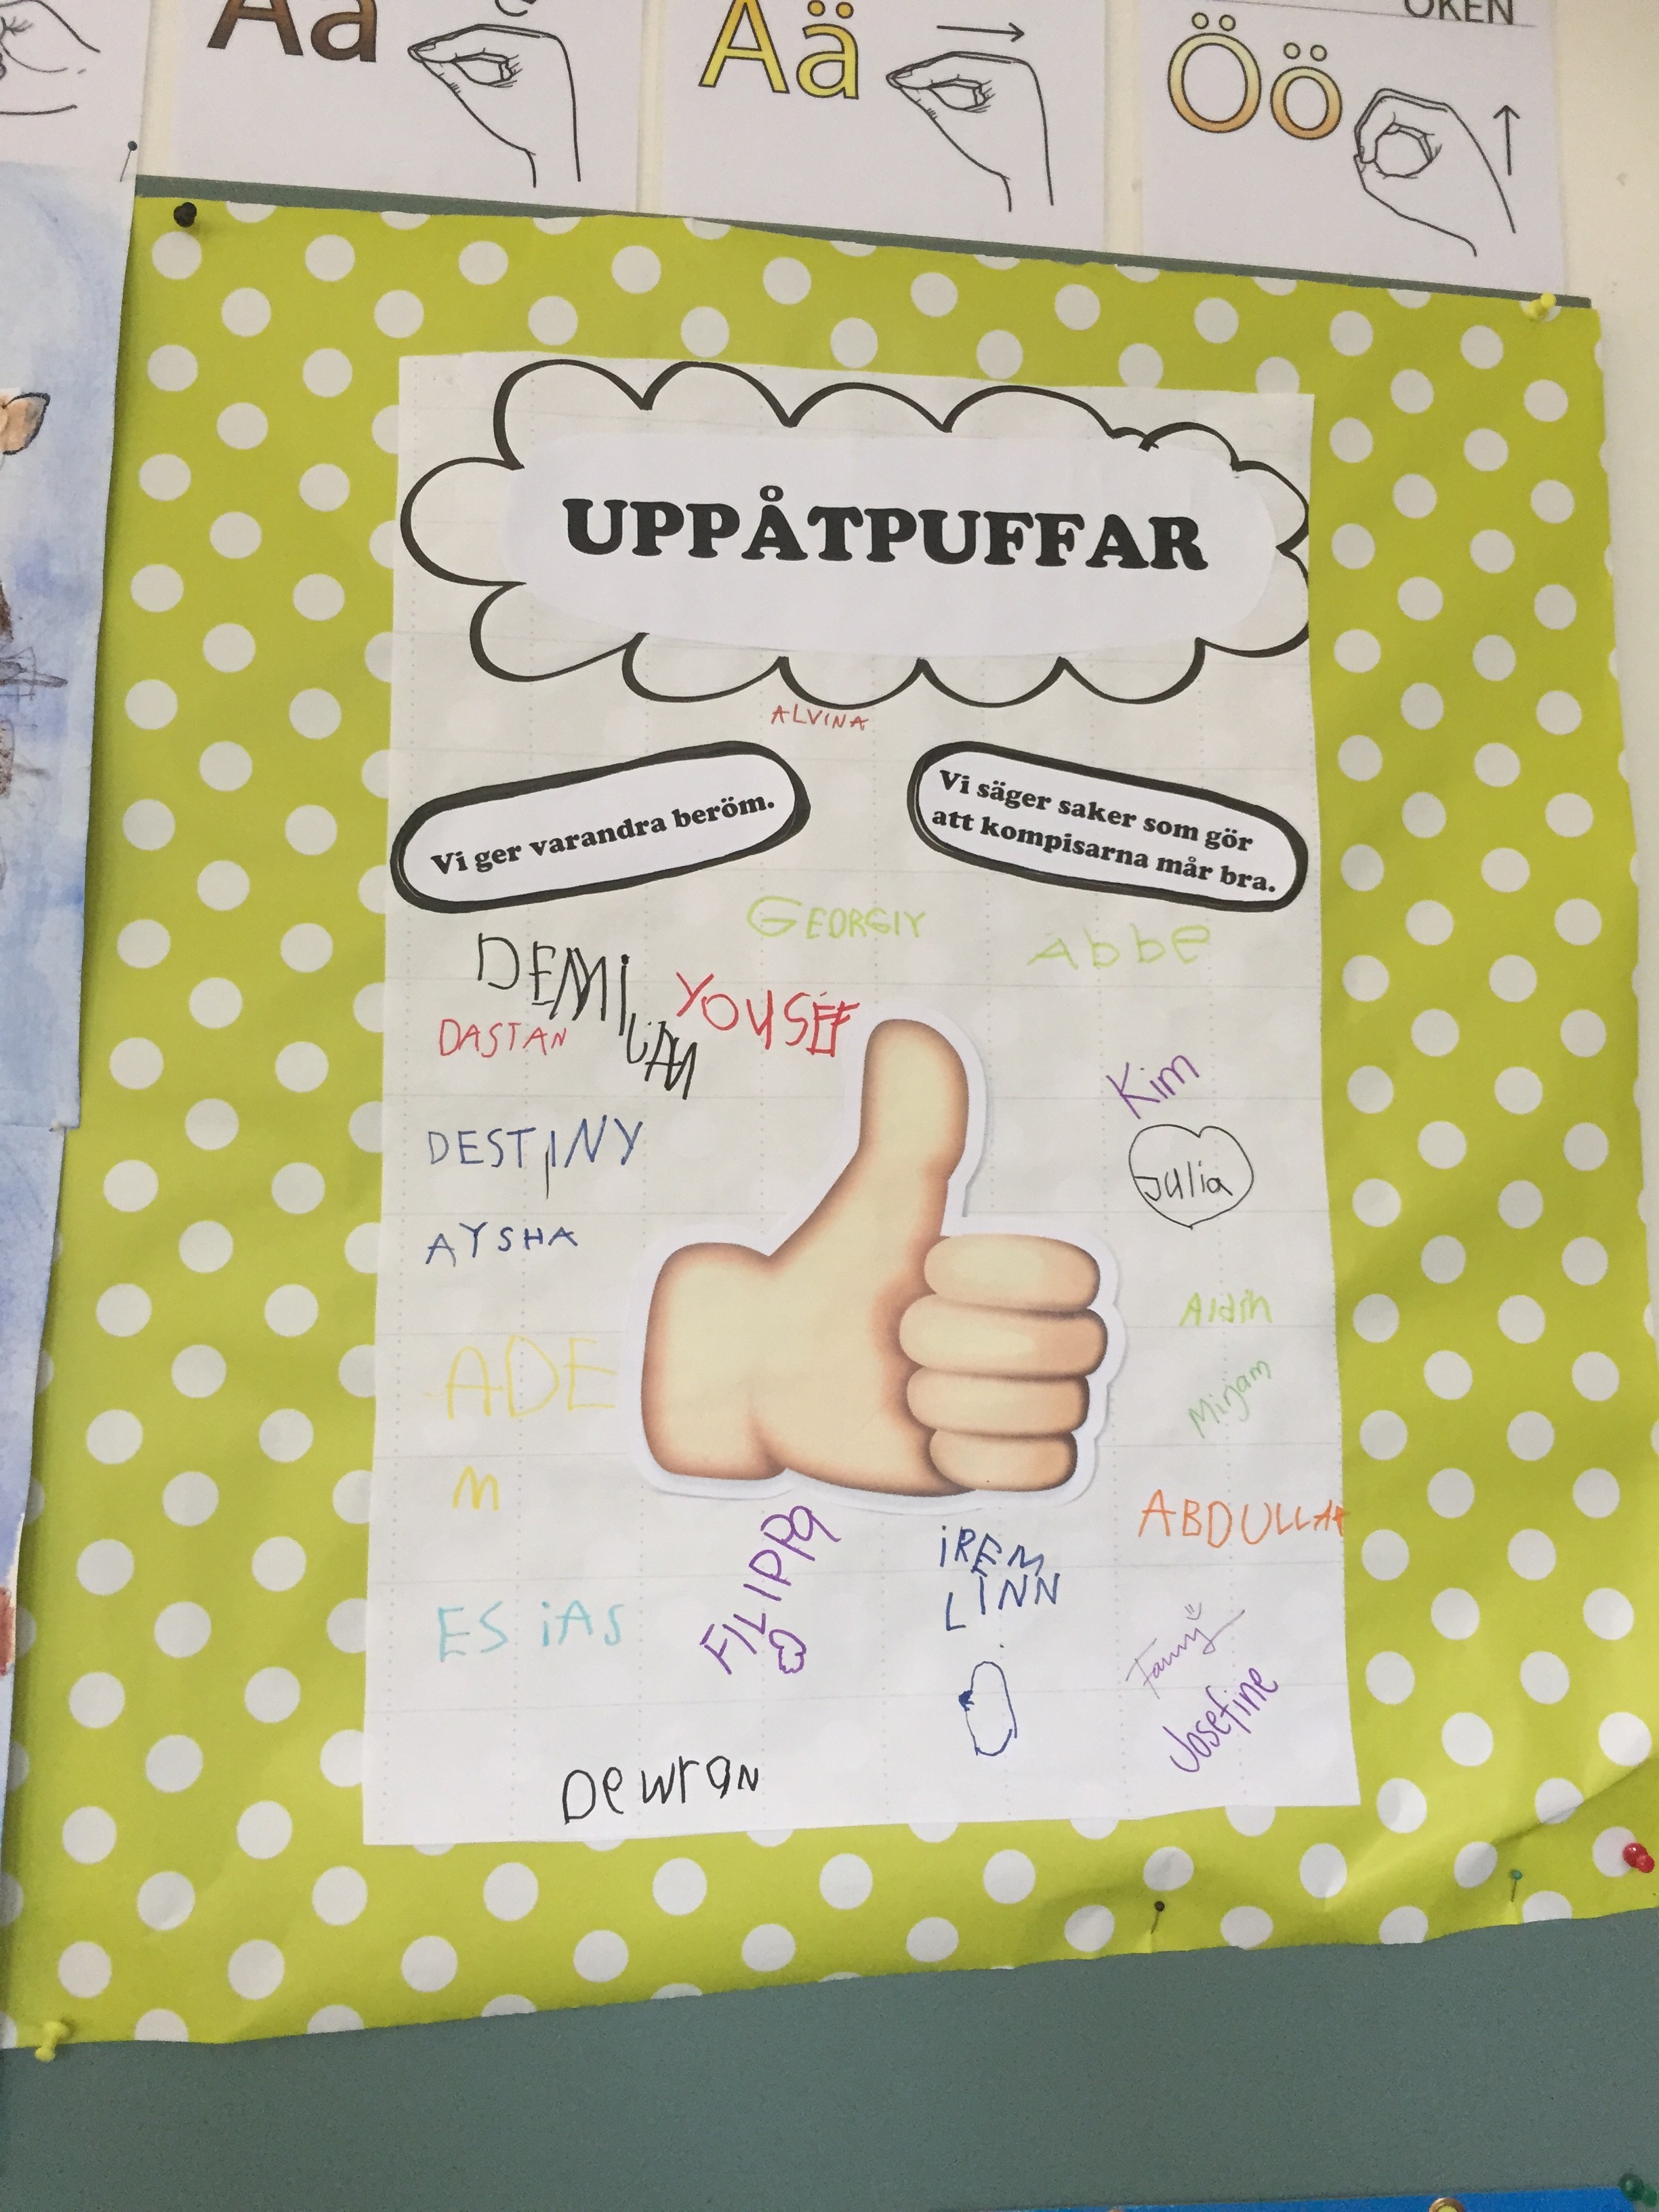 Åå
Ää
ÖKEN
Öö
UPPÅTPUFFAR
ALVINA
Vi ger varandra beröm.
Vi säger saker som gör
att kompisarna mår bra.
GEORGIY
Abbe
DEMI
LIAN
YOUSEF
DASTAN
Kim
DESTINY
Julia
AYSHA
Aldin
ADE
M
Mirjam
ABDULLAH
FILIPPA
iREM
LINN
ESiAS
Fanny
Josefine
Dewran